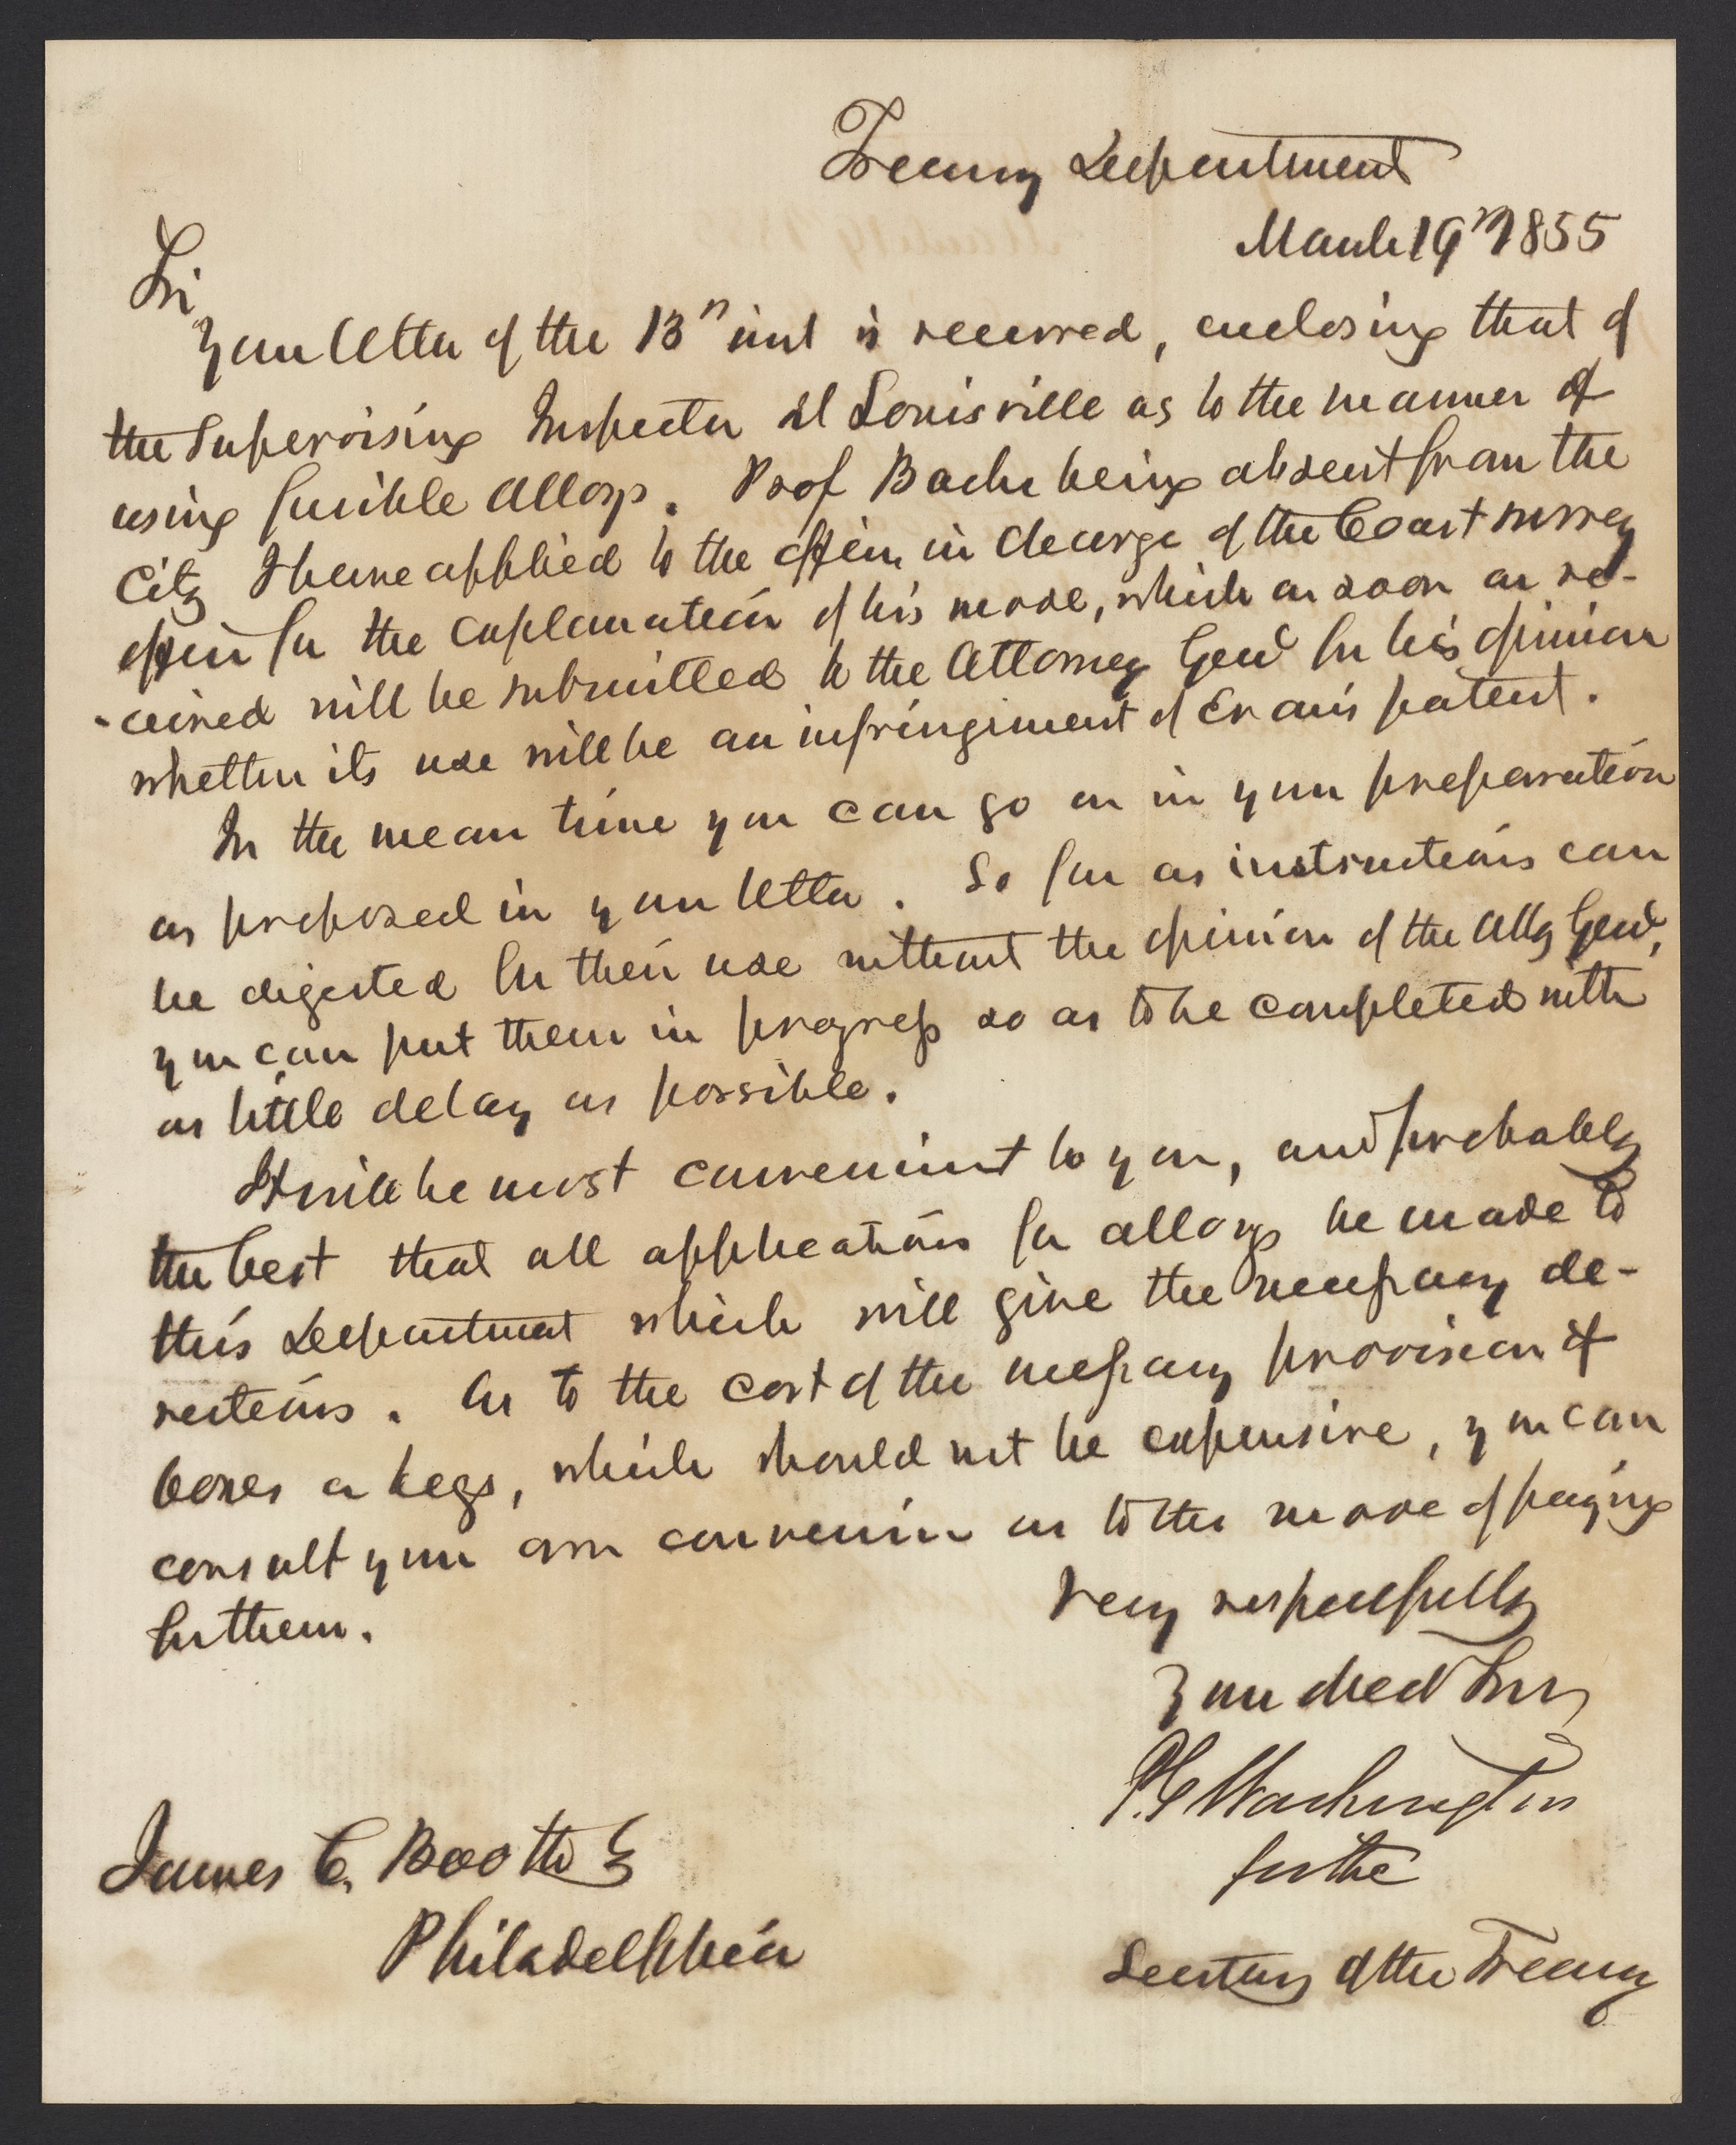 Treasury Department
March 19th 1855
Sir
Your letter of the 13th inst is received, enclosing that of
the Supervising Inspector at Louisville as to the manner of
using fusible alloys. Prof Bache being absent from the
City I have applied to the officer in charge of the Coast survey
office for the explanation of his mode, which as soon as re-
-ceived will be submitted to the Attorney Genl for his opinion
whether its use will be an infringement of Evans patent.
In the mean time you can go on in your preparation
as proposed in your letter. So far as instructions can
be digested for their use without the opinion of the Atty Genl,
you can put them in progress so as to be completed with
as little delay as possible.
It will be most convenient to you, and probably
the best that all applications for alloys be made to
this Department which will give the necessary di-
rections. As to the cost of the necessary provision of
boxes or kegs, which should not be expensive, you can
consult your own convenience as to the mode of paying
for them.
Very respectfully
Your obed Srv
P.G Washington
for the
Secretary of the Treasury
James C. Booth
Philadelphia